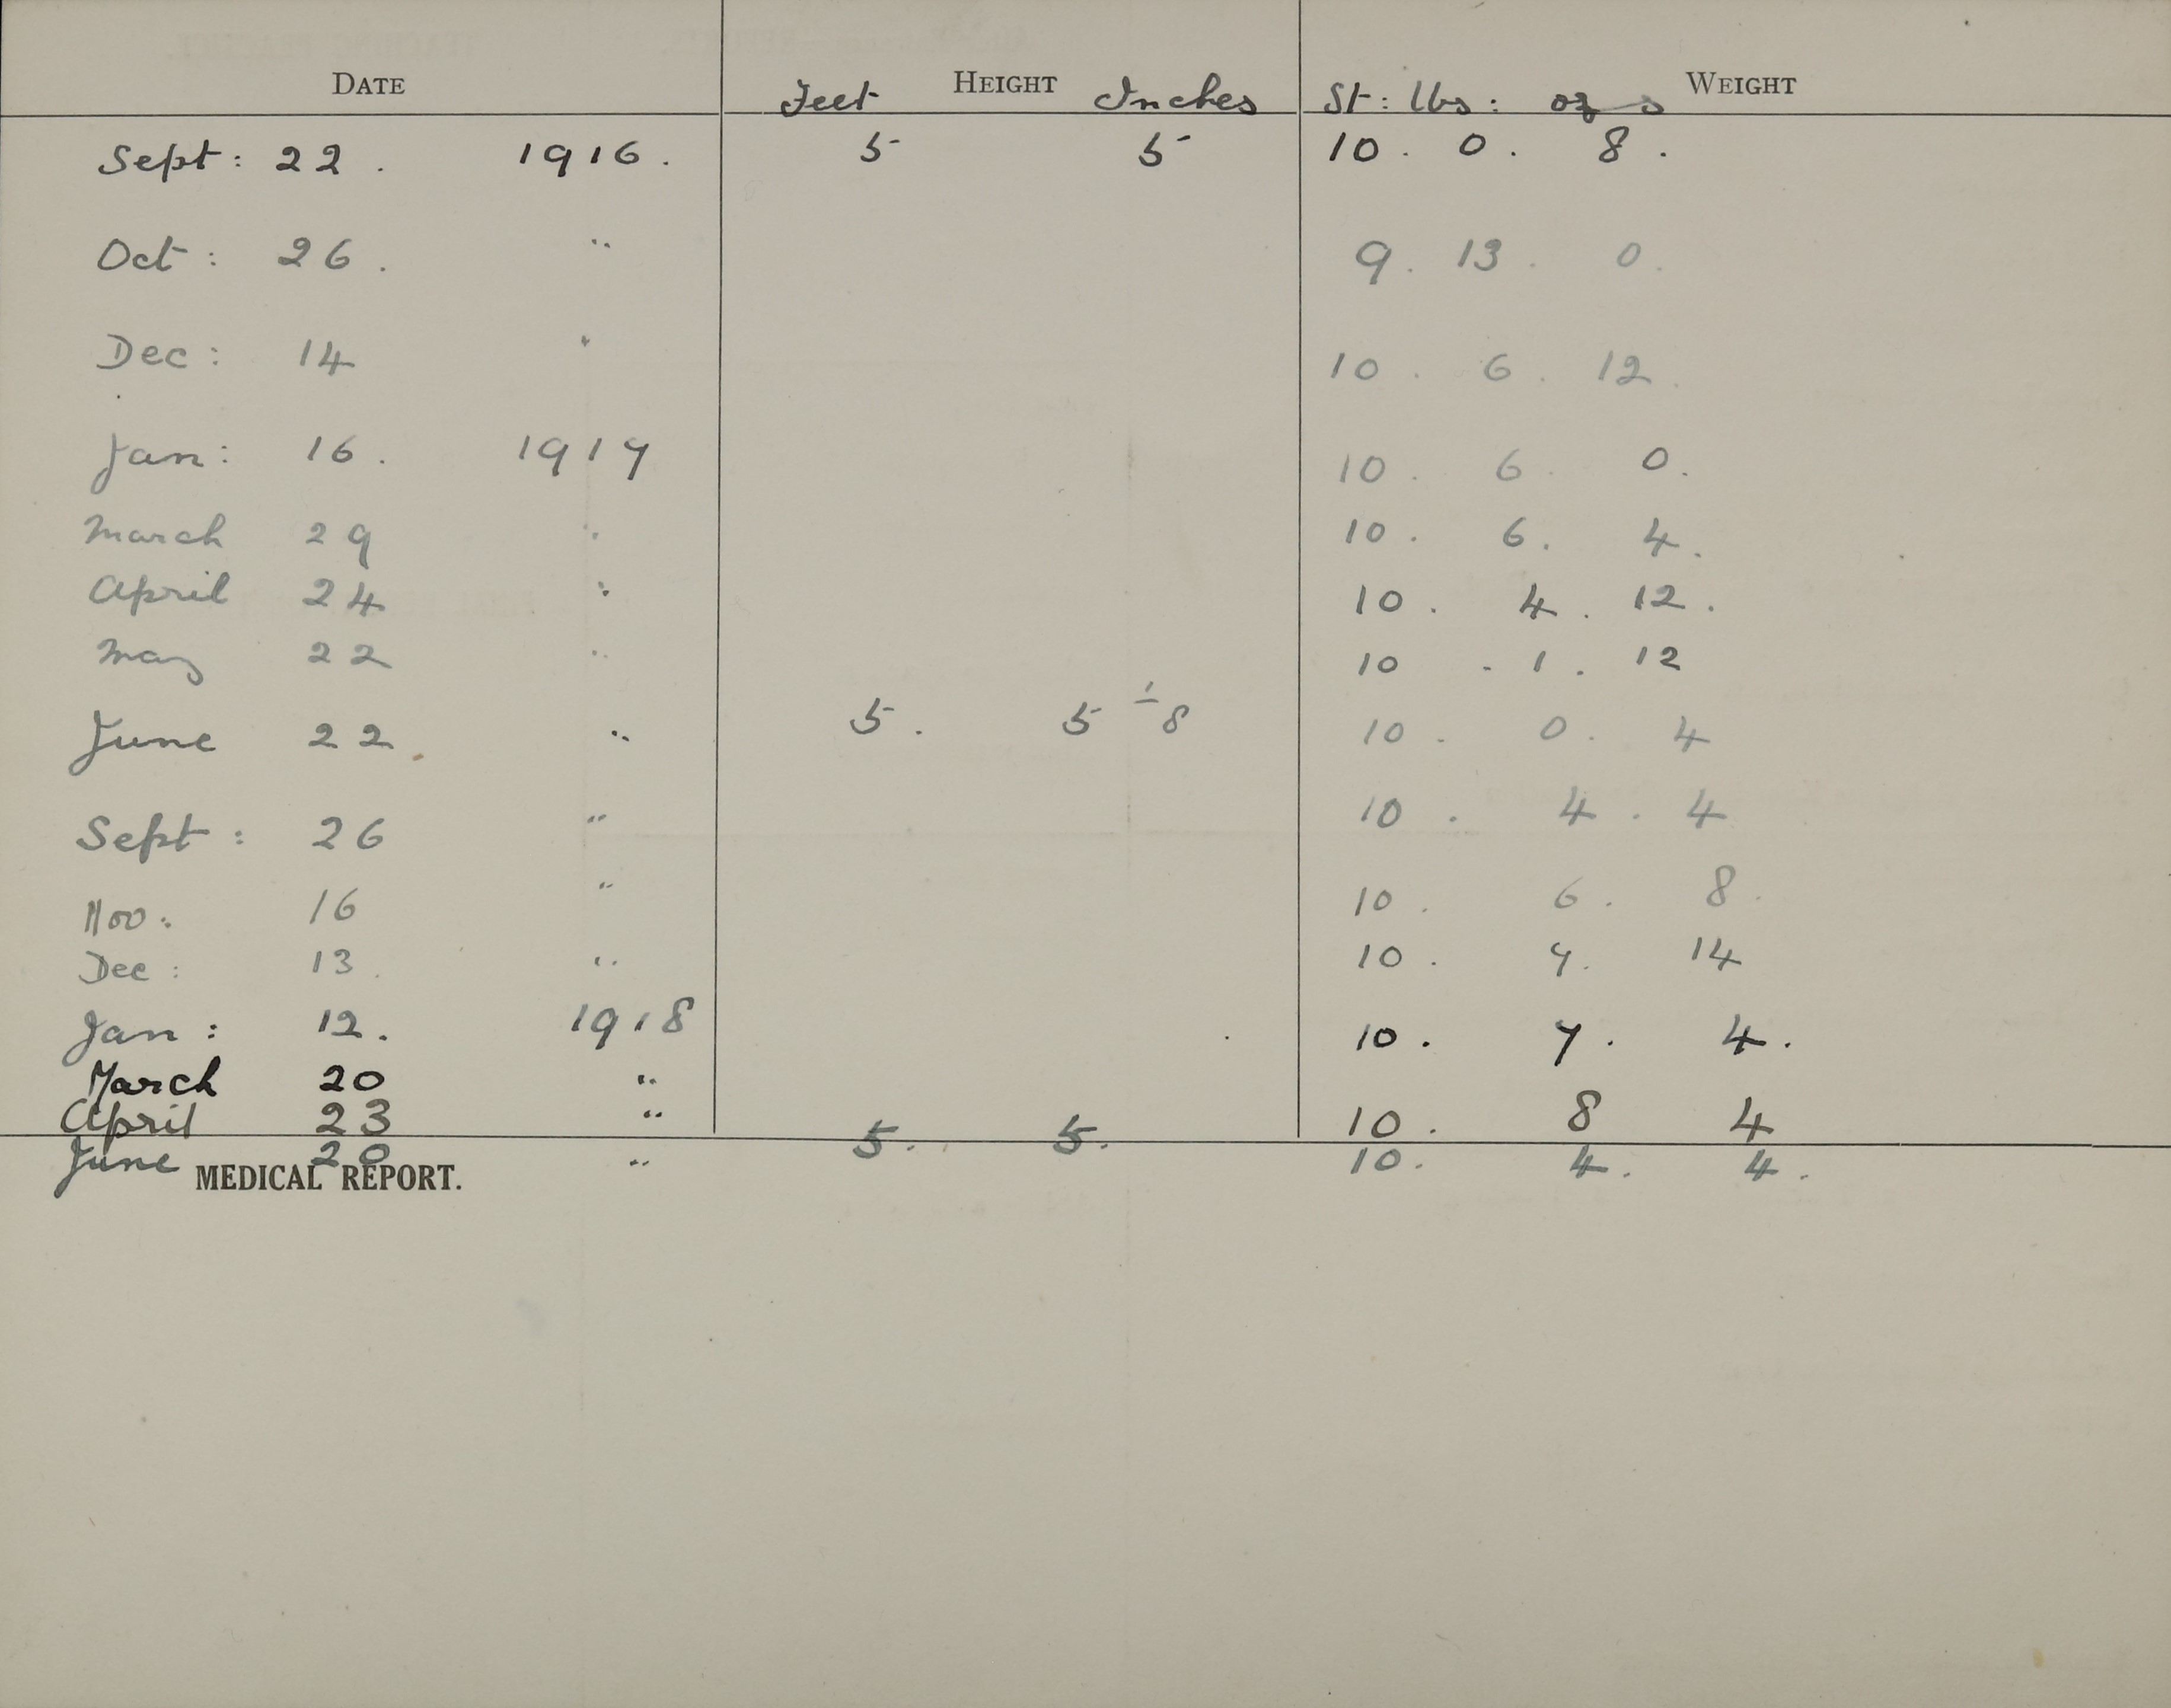 DATE Feet HEIGHT Inches St: lbs: ozs WEIGHT
Sept: 22. 1916. 5 5 10. 0. 8.
Oct: 26. " 9. 13. 0.
Dec: 14 " 10. 6. 12.
Jan: 16. 1917 10. 6. 0.
March 29 " 10. 6. 4.
April 24 " 10. 4. 12.
May 22 " 10. 1. 12
June 22. " 5. 5 1/8 10. 0. 4
Sept: 26 " 10. 4. 4
Nov: 16 " 10. 6. 8.
Dec: 13. " 10. 7. 14
Jan: 12. 1918 10. 7. 4.
March 20 "
April 23 " 10. 8 4
June 20 " 5. 5. 10. 4. 4.
MEDICAL REPORT.